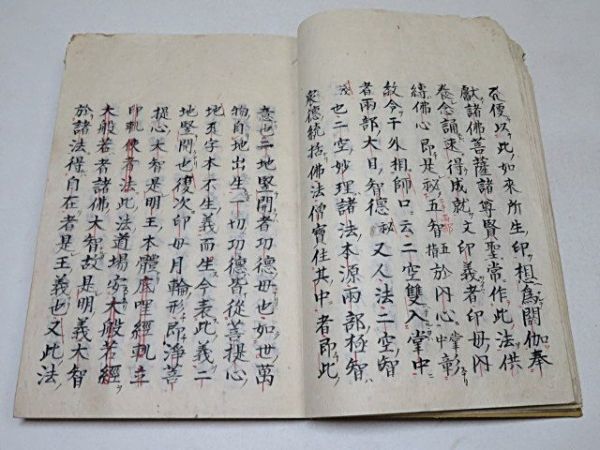 在便以此如来所生印想為閼伽奉
獻諸佛菩薩諸尊賢聖常作此法供
養念誦速得成就文印義者印母內
縛佛心即是秘五智指五於內心中章
故今干外相師口云二空雙入掌中
者兩部大日智德秘又人法二空智
也二空妙理諸法本源兩部極智
眾德統括佛法僧寶住其中者即此
意也二地堅開者功德母也如世萬
物自地出生一切功德皆從菩提心
地頁字本不生義而生今表此義二
地堅開也後次印母月輪形即淨菩
提心大智是明王本體底哩經軌立
印軌使者法此法道場安大般若經
大般若者諸佛大智故是明義大智
於諸法得自在者是王義也又此法